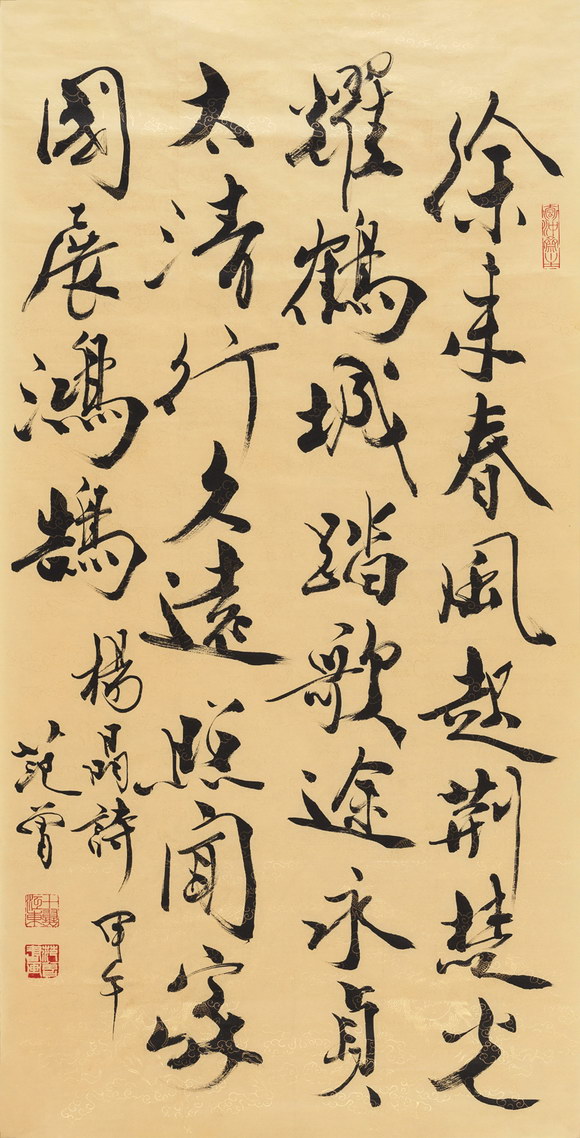 徐来春風起荆楚光
耀鶴城踏歌途永貞
太清行久遠照聞家
國展鴻鵠
楊晶詩 甲午
范曾